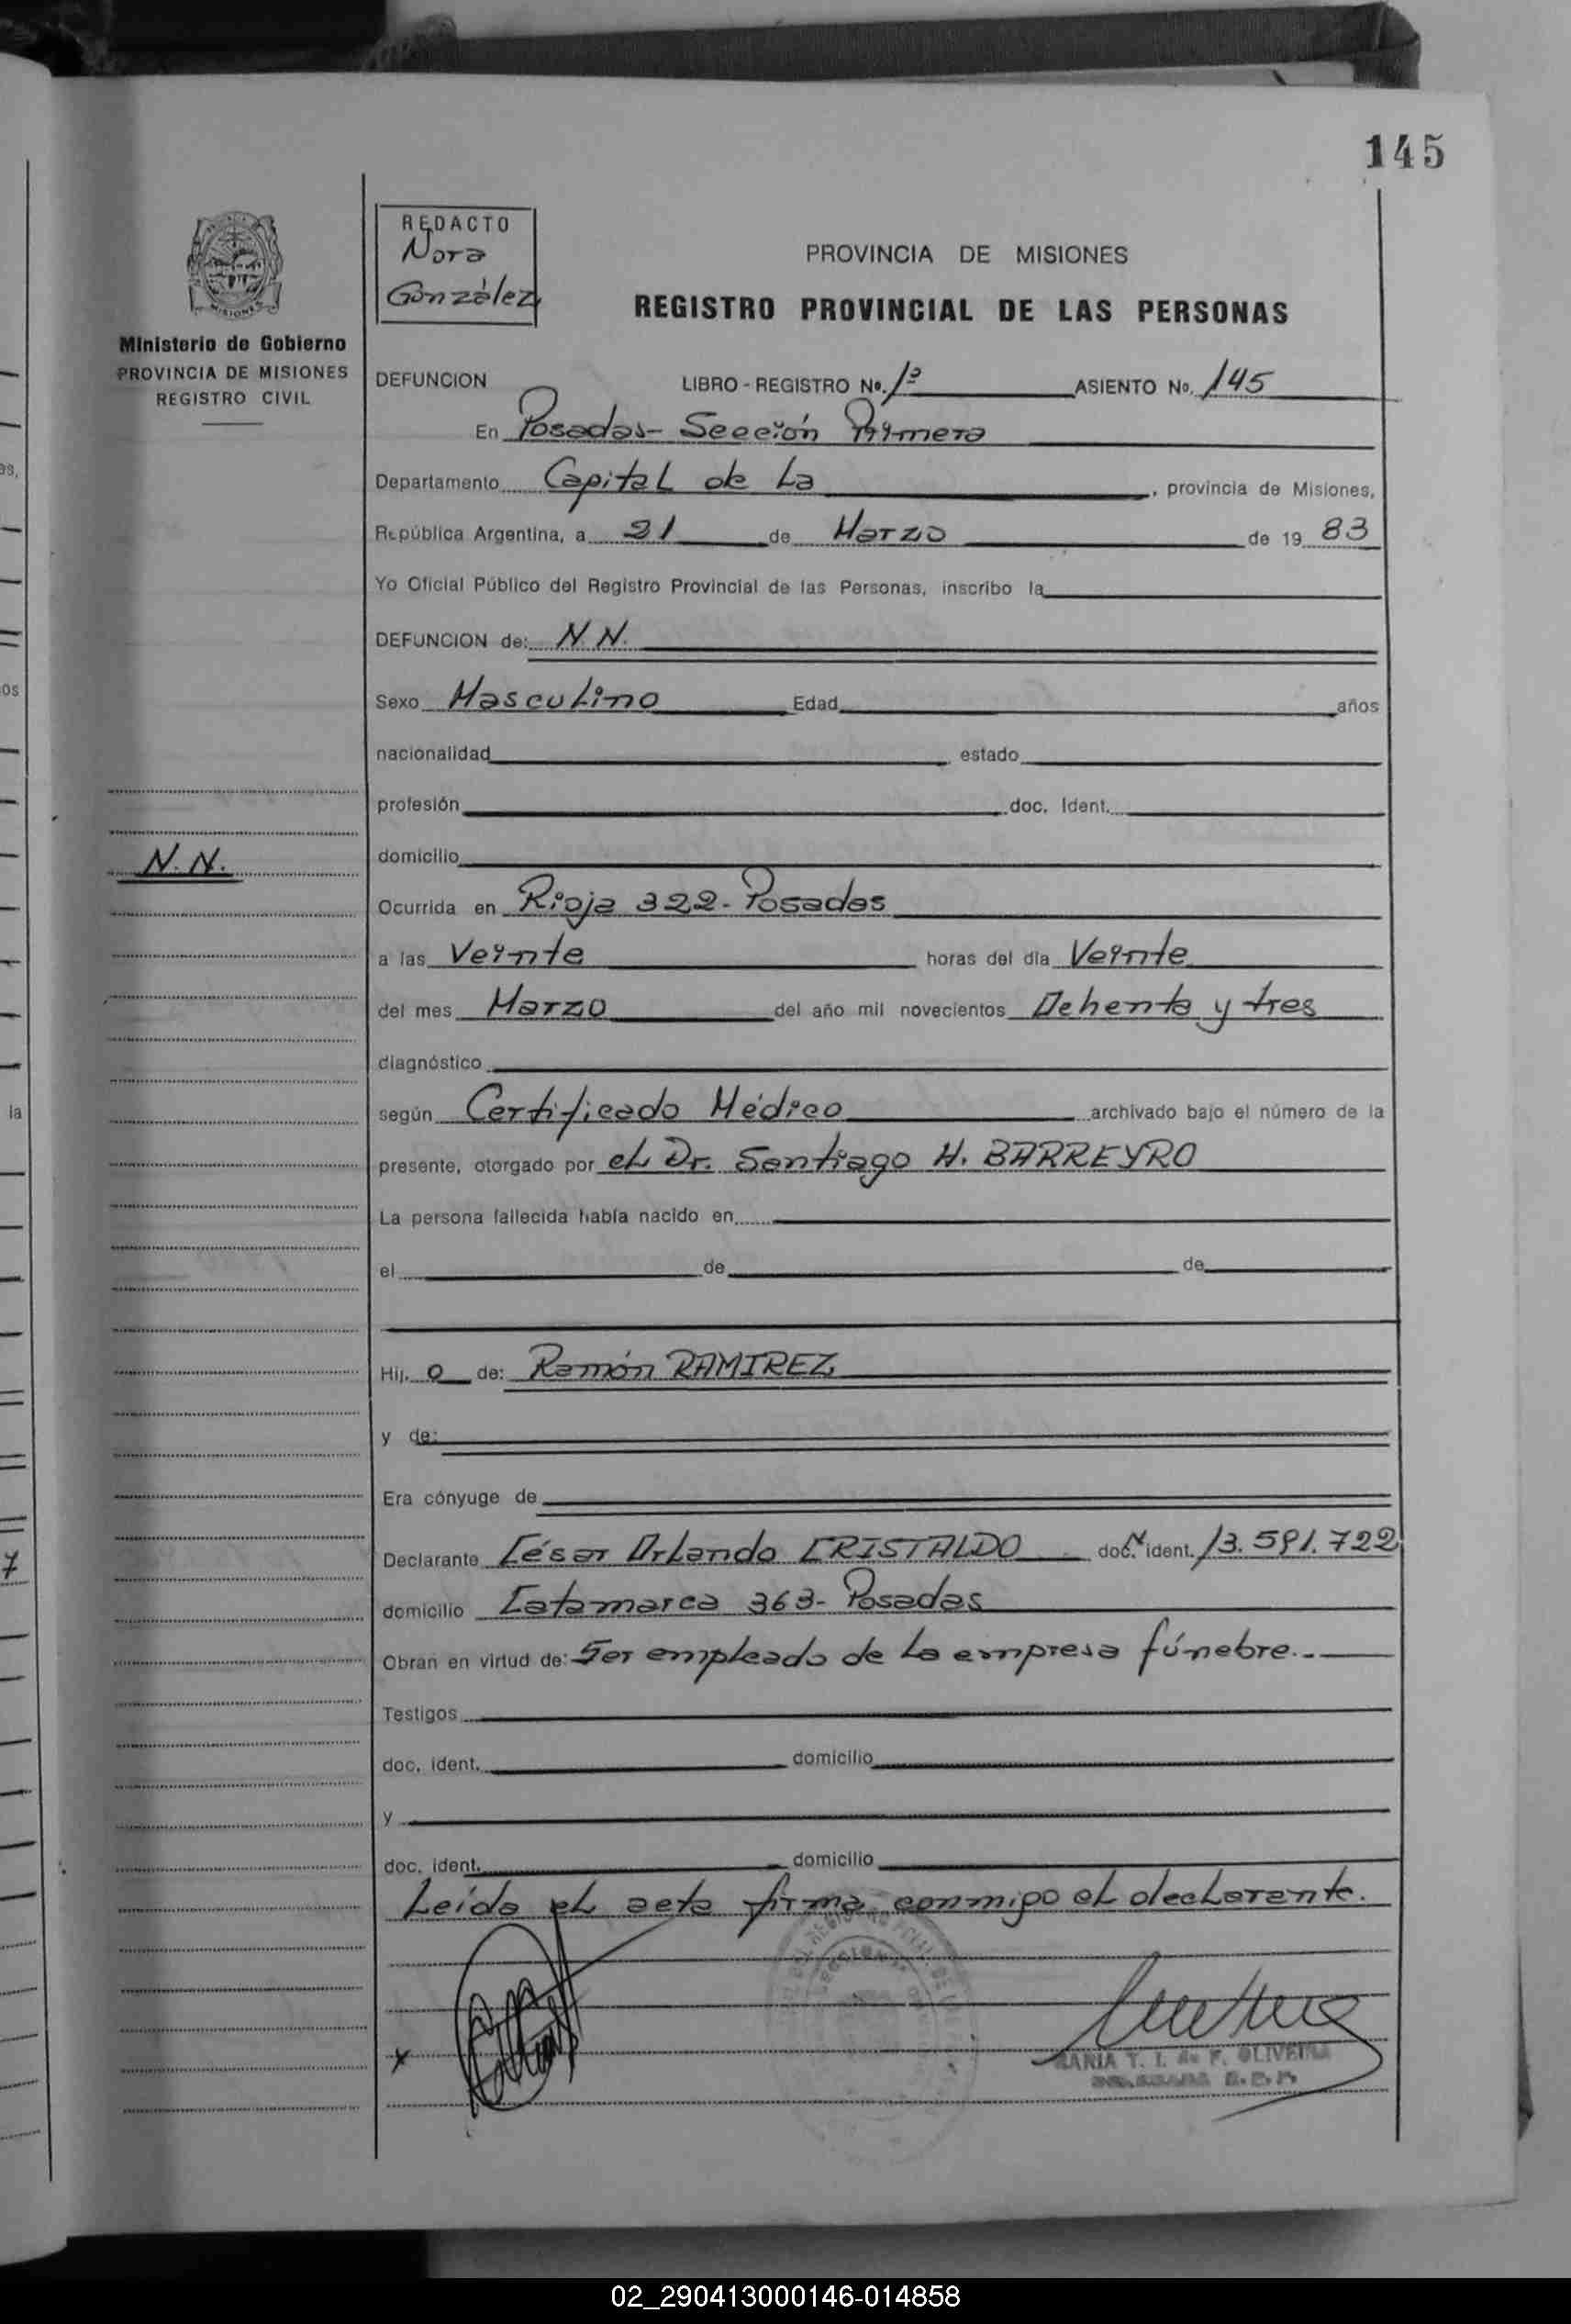 145
REDACTO
Nora
González
PROVINCIA DE MISIONES
REGISTRO PROVINCIAL DE LAS PERSONAS
MISIONES
Ministerio de Gobierno
PROVINCIA DE MISIONES
REGISTRO CIVIL
DEFUNCION LIBRO - REGISTRO Nº. 1º ASIENTO No. 145
En Posadas - Sección Primera
Departamento Capital de La, provincia de Misiones,
República Argentina, a 21 de Marzo de 19 83
Yo Oficial Público del Registro Provincial de las Personas, inscribo la
DEFUNCION de: N.N.
Sexo Masculino Edad años
nacionalidad, estado
profesión doc. Ident.
N.N.
domicilio
Ocurrida en Rioja 322 - Posadas
a las Veinte horas del día Veinte
del mes Marzo del año mil novecientos Ochenta y tres
diagnóstico
según Certificado Médico archivado bajo el número de la
presente, otorgado por el Dr. Santiago H. BARREYRO
La persona fallecida había nacido en
el de de
Hij. o de: Ramón RAMIREZ
y de:
Era cónyuge de
Declarante César Orlando CRISTALDO doc. ident. 13.591.722
domicilio Catamarca 363 - Posadas
Obran en virtud de: Ser empleado de la empresa fúnebre.-
Testigos
doc. ident. domicilio
y
doc. ident. domicilio
Leída el acta firma conmigo el declarante.
x
MARIA T. I. de F. OLIVEIRA
02_290413000146-014858